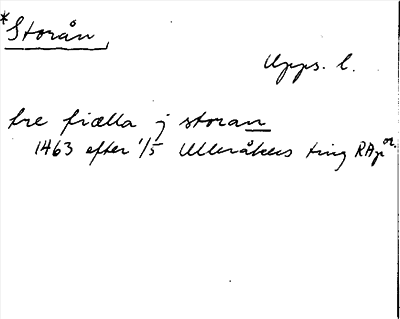 *Storån,
Upps. l.
tre fiælla j storan
1463 efter 1/5 Ulleråkers ting RAp or.